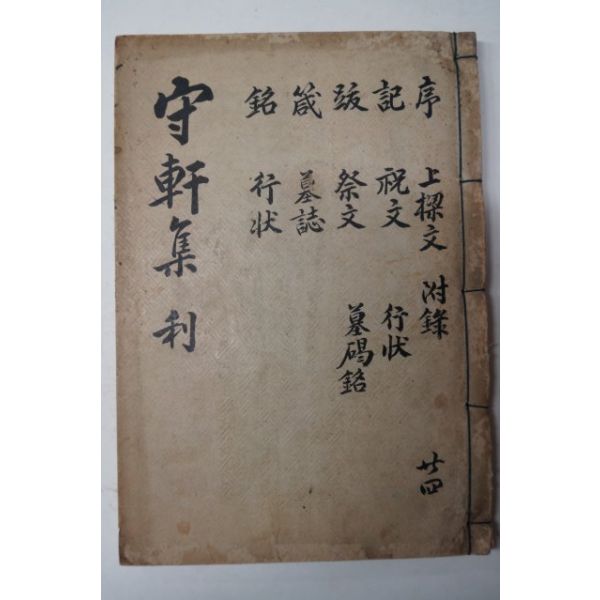 序 上樑文 附錄 廿四
記 祝文 行狀
跋 祭文 墓碣銘
箴 墓誌
銘 行狀
守軒集 利